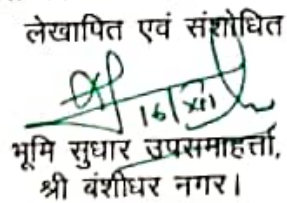 लेखापित एवं संशोधित
16/XII
भूमि सुधार उपसमाहर्त्ता,
श्री बंशीधर नगर।